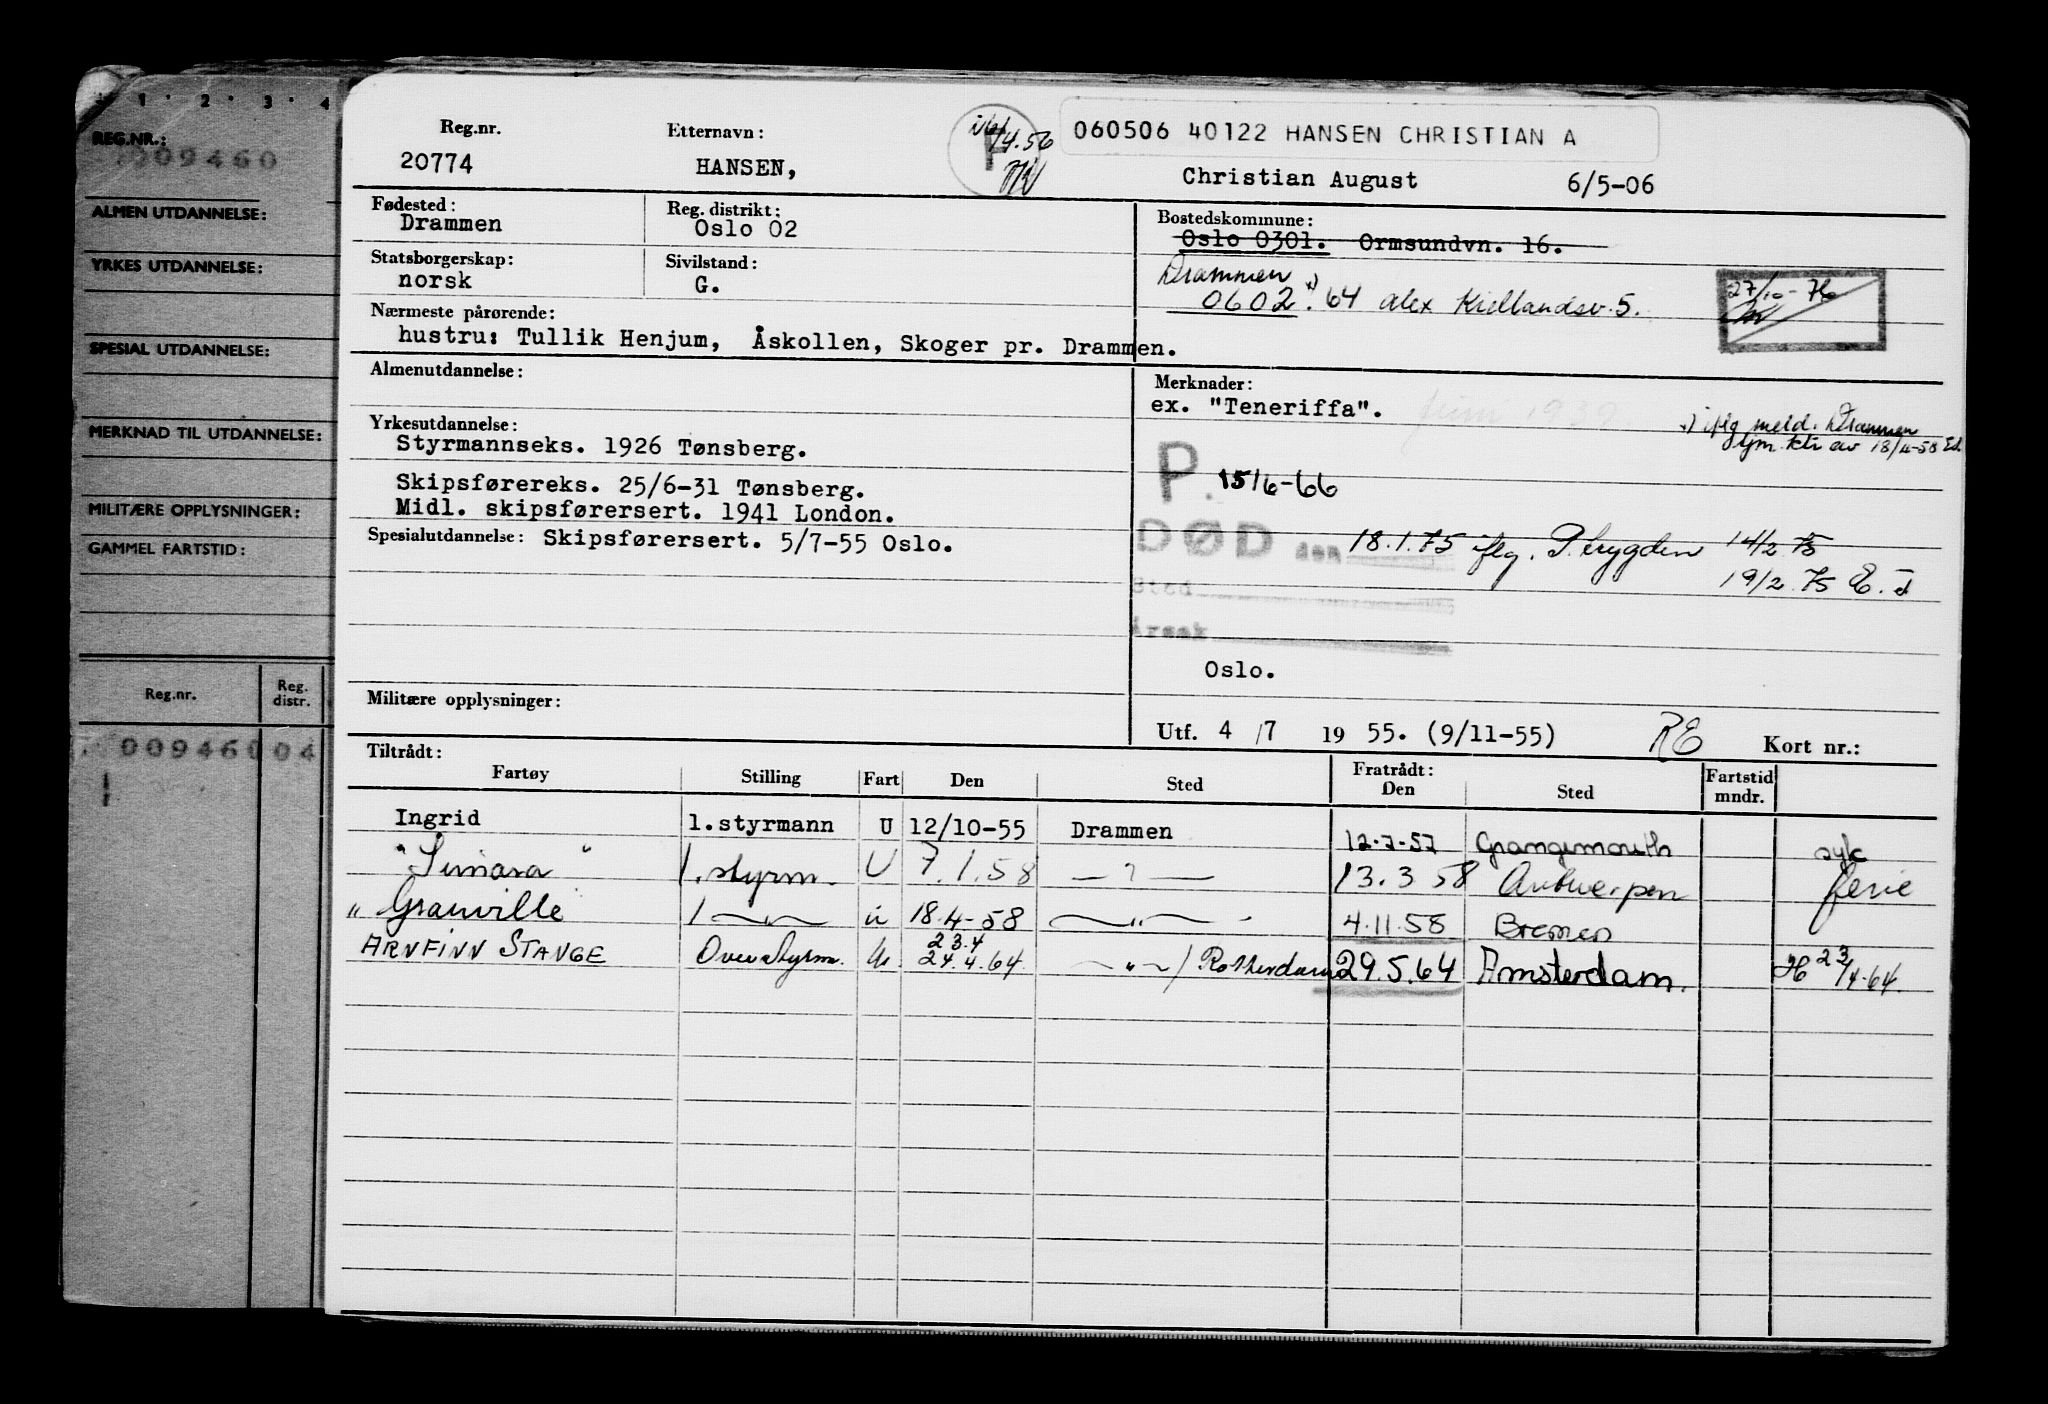 1 · 2 · 3 · 4
REG.NR.:
009460
ALMEN UTDANNELSE:
YRKES UTDANNELSE:
SPESIAL UTDANNELSE:
MERKNAD TIL UTDANNELSE:
MILITÆRE OPPLYSNINGER:
GAMMEL FARTSTID:
Reg.nr. Reg. distr.
009460 04
Reg.nr. Etternavn: 060506 40122 HANSEN CHRISTIAN A
20774 HANSEN, Christian August 6/5-06
Fødested: Reg. distrikt: Bostedskommune:
Drammen Oslo 02 Oslo 0301. Ormsundvn. 16.
Statsborgerskap: Sivilstand: Drammen
norsk G. 0602. 64 Alex Kiellandsv. 5. 27/10-76
Nærmeste pårørende:
hustru: Tullik Henjum, Åskollen, Skoger pr. Drammen.
Almenutdannelse: Merknader:
ex. "Teneriffa". juni 1939
x) iflg meld. Drammen
sjm.ktr av 18/4-58 Ed.
Yrkesutdannelse:
Styrmannseks. 1926 Tønsberg.
Skipsførereks. 25/6-31 Tønsberg. P. 15/6-66
Midl. skipsførersert. 1941 London.
Spesialutdannelse: Skipsførersert. 5/7-55 Oslo.
DØD den 18.1.75 iflg. P.trygden 14/2 75
Sted 19/2 75
Årsak
Oslo.
Militære opplysninger:
Utf. 4/7 1955. (9/11-55) RE Kort nr.:
Tiltrådt: Fratrådt:
Fartøy Stilling Fart Den Sted Den Sted Fartstid mndr.
Ingrid 1.styrmann U 12/10-55 Drammen 12-7-57 Grangemouth syk
"Simara" 1. styrm. U 7.1.58 — " — 13.3 58 Antwerpen ferie
" Granville 1 — " — u 18.4-58 — " — 4.11.58 Bremen
23.4
ARNFINN STANGE Overstyrm. U. 24.4.64. — " — / Rotterdam 29.5.64 Amsterdam. 23/4-64.